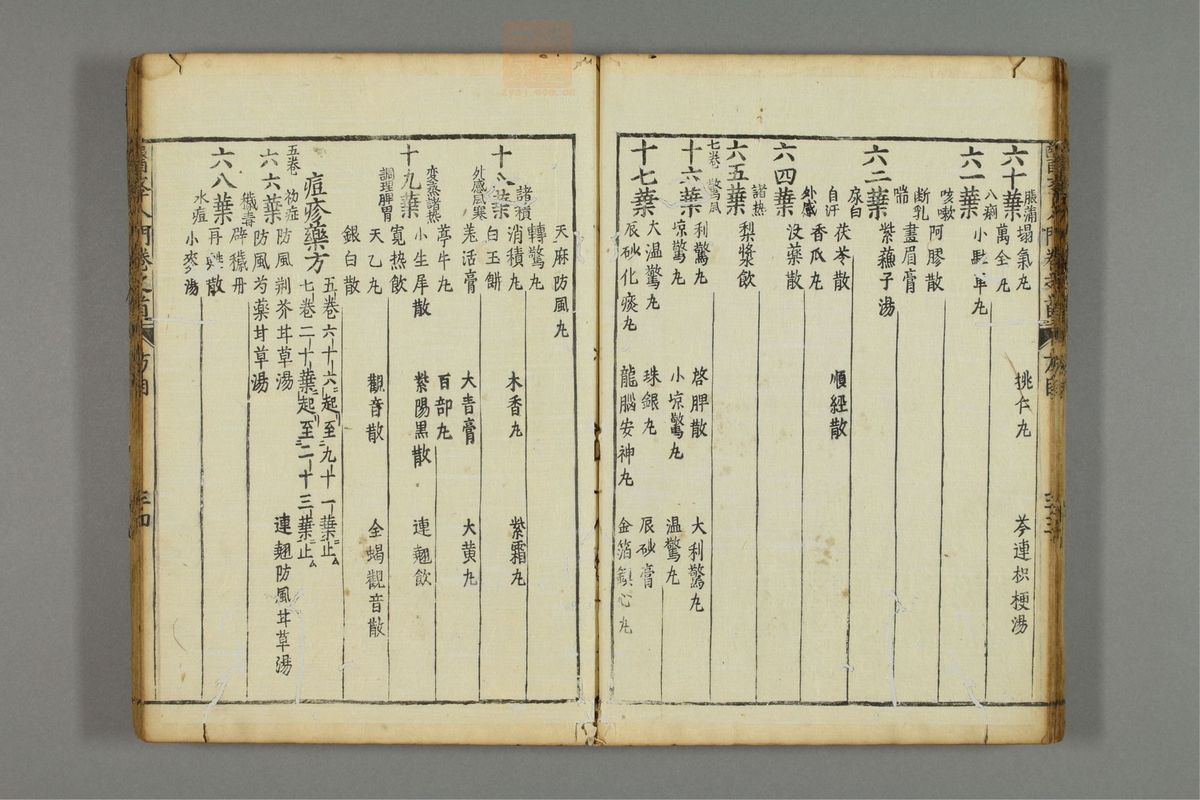 六十葉 脹滿 塌氣丸 挑仁丸 芩連枳梗湯
八痢 萬全丸
六一葉 小駐車丸
咳嗽 阿膠散
斷乳 畫眉膏
喘 紫蘓子湯
六二葉
尿白 茯苓散 順經散
自汗 香瓜丸
外感 沒藥散
六四葉
諸熱 梨漿飲
六五葉
七卷 驚風 利驚丸 啓脾散 大利驚丸
十六葉 凉驚丸 小凉驚丸 温驚丸
大温驚丸 珠銀丸 辰砂膏
十七葉 辰砂化痰丸 龍腦安神丸 金箔鎮心丸
天麻防風丸
轉驚丸
諸積 消積丸 木香丸 紫霜丸
十八葉 白玉餅
外感風寒 羌活膏 大青膏 大黄丸
葶牛丸 百部丸
變蒸諸熱 小生犀散 紫陽黒散 連翹飲
十九葉 寛熱飲
調理脾胃 天乙丸 觀音散 全蝎觀音散
銀白散
痘疹藥方 五卷六十六起至九十一葉止
七卷二十葉起至二十三葉止
五卷 初症 防風荆芥甘草湯 連翹防風甘草湯
六六葉 防風芍藥甘草湯
穢毒 辟穢丹
六八葉 再甦散
水痘 小麥湯